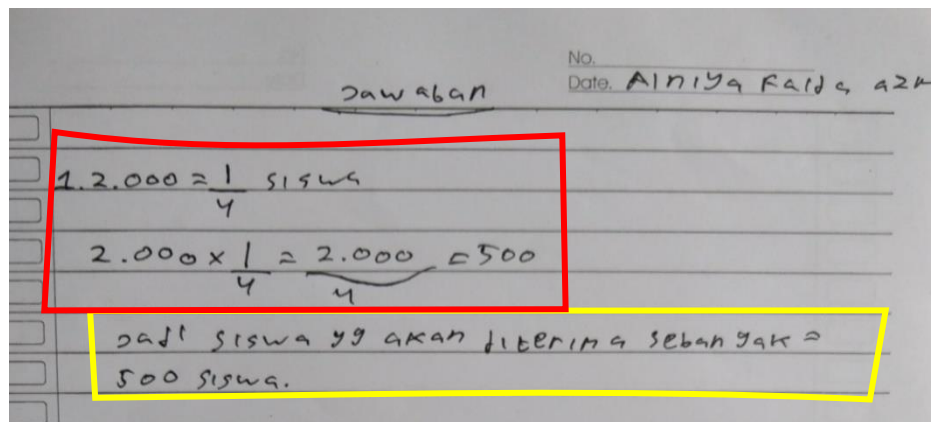 No.
Date. Alniya Faida azk
Jawaban
1. 2.000 = 1/4 siswa
2.000 x 1/4 = 2.000/4 = 500
Jadi siswa yg akan diterima sebanyak =
500 siswa.